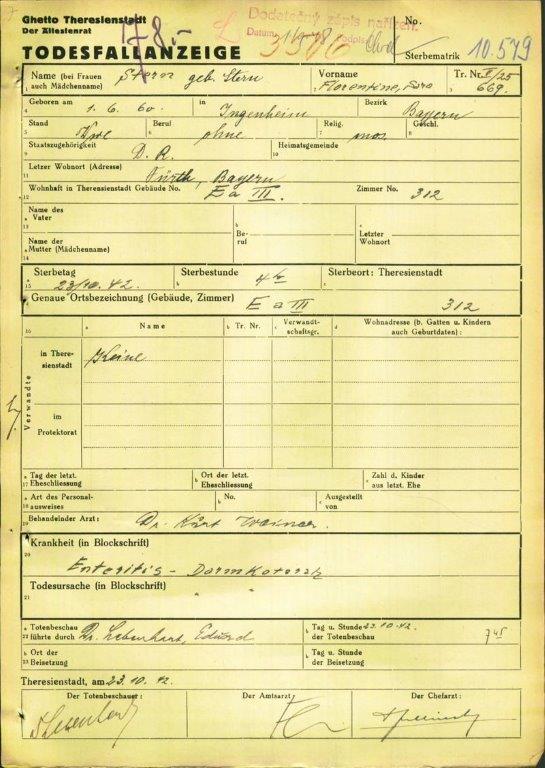 Ghetto Theresienstadt
Der Ältestenrat
TODESFALLANZEIGE
178.-
Dodatečný zápis nařízen.
Datum: Podpis:
No.
Sterbematrik 10.579
1 Name (bei Frauen auch Mädchenname) Stern geb. Stern
2 Vorname Florentine, Sara
3 Tr. Nr. II/25 669.
4 Geboren am 1. 6. 60. in Ingenheim Bezirk Bayern
5 Stand Wwe 6 Beruf ohne 7 Relig. mos. 8 Geschl.
9 Staatszugehörigkeit D. R. 10 Heimatsgemeinde
11 Letzer Wohnort (Adresse) Fürth, Bayern
12 Wohnhaft in Theresienstadt Gebäude No. E a III. Zimmer No. 312
13 a Name des Vater b Beruf c Letzter Wohnort
14 a Name der Mutter (Mädchenname)
15 a Sterbetag 23/10. 42. b Sterbestunde 4 h c Sterbeort: Theresienstadt
Genaue Ortsbezeichnung (Gebäude, Zimmer) E a III 312
16 a Name b Tr. Nr. c Verwandtschaftsgr. d Wohnadresse (b. Gatten u. Kindern auch Geburtdaten):
Verwandte
in Theresienstadt Keine
im Protektorat
17 a Tag der letzt. Eheschliessung b Ort der letzt. Eheschliessung c Zahl d. Kinder aus letzt. Ehe
18 a Art des Personalausweises b No. c Ausgestellt von
19 Behandelnder Arzt: Dr. Kurt
20 Krankheit (in Blockschrift)
Enteritis - Darmkatarrh
21 Todesursache (in Blockschrift)
22 a Totenbeschau führte durch Dr. Eduard b Tag u. Stunde der Totenbeschau 23.10.42. 7 45
23 a Ort der Beisetzung b Tag u. Stunde der Beisetzung
Theresienstadt, am 23. 10. 42.
Der Totenbeschauer: Der Amtsarzt: Der Chefarzt: